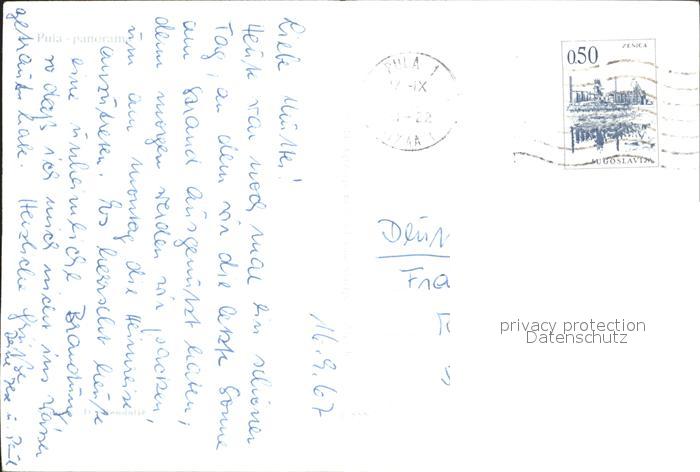 Pula - panorama
16.9.67
Liebe Mutti!
Heute war noch mal ein schöner
Tag, an dem wir die letzte Sonne
am Strand ausgenützt haben,
denn morgen werden wir packen,
um am Montag die Heimreise
anzutreten. Es herrscht heute
eine unheimliche Brandung,
so daß ich mich nicht ins Wasser
getraut habe. Herzliche Grüße
PULA 1
IX
0.50
ZENICA
JUGOSLAVIJA
Deut
Fra
privacy protection
Datenschutz